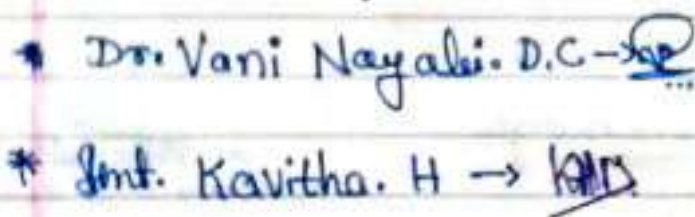 • Dr. Vani Nayaki. D.C →
* Smt. Kavitha. H →